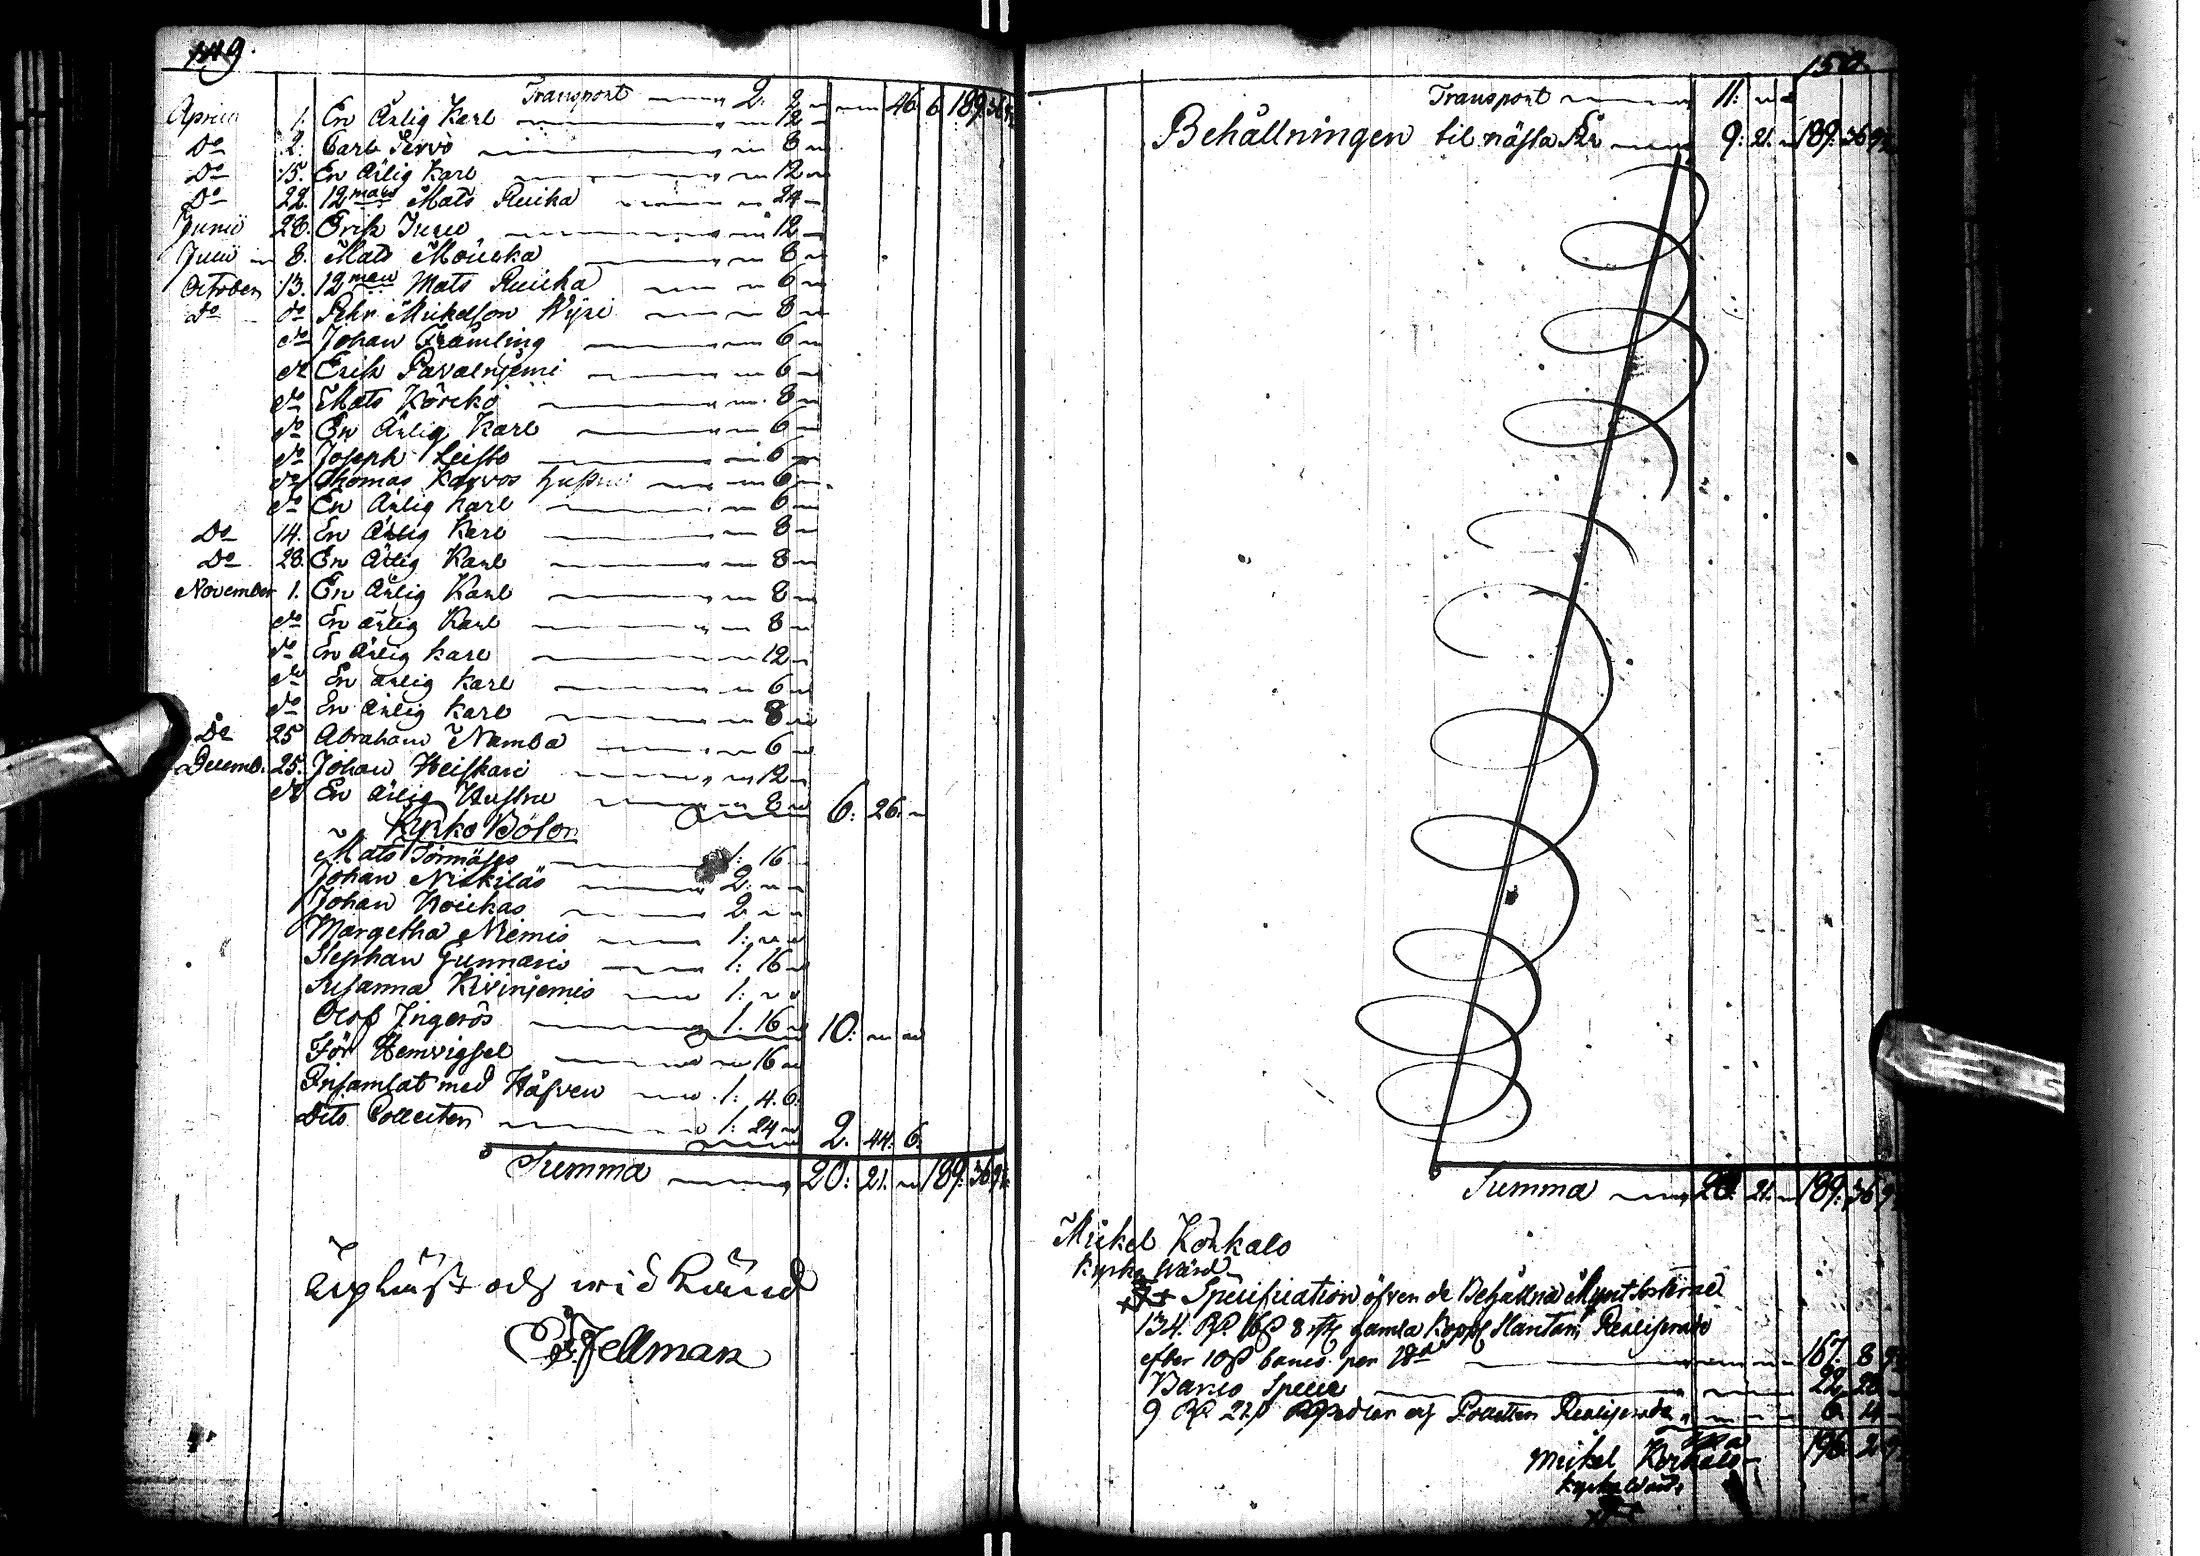 149.
Transport 2: 2 46 6 189: 36
April 1. En Ärlig Karl 12
Do 2. Carl Servo 8
Do 15. En Ärlig Karl 12
Do 22. 12man Mats 24
Junii 28. Erik 12
Julii 8. Mats 8
October 13. 12man Mats 6
do do Pehr Mickelson 8
do Johan Främling 6
do Erik Pavalnjemi 6
do Mats Körckö 8
do En Ärlig Karl 6
do Joseph Leisto 6
do Thomas Karvos hustru 6
do En Ärlig Karl 6
Do 14. En Ärlig Karl 8
Do 28. En Ärlig Karl 8
November 1. En Ärlig Karl 8
do En ärlig Karl 8
do En Ärlig Karl 12
do En ärlig Karl 6
do En ärlig Karl 8
Do 25 Abraham Namba 6
Decemb. 25. Johan Heiskari 12
do En ärlig Hustru 8 6: 26.
Kyrko Böter
Mats 1: 16
Johan Niskiläs 2:
Johan 2
Margetha Niemis 1:
Stephan Gunnaris 1: 16
Susanna Kivinjemis 1:
Olof Ingerös 1. 16 10:
För Hemvigsel 16
Insamlat med Håfven 1: 4. 6.
Dito Collecten 1: 24 2. 44. 6.
Summa 20: 21. 189: 36
och wid hand
Fellman
150.
Transport 11:
Behållningen til nästa År 9: 21. 189: 36
Summa 20: 21. 189: 36
Mickel Körkalo
Kyrko Wärd
Specification öfven de Behållna
134. 8 gamla Realiserade
efter 10 banco per 167. 8
Banco Specie 22. 28
9 21 Realiserade 6. 14
196. 2
Mickel Körkalo
Kyrko Wärd